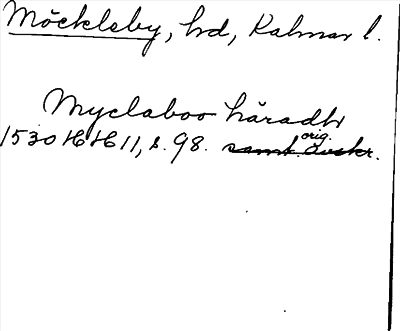 Möckleby, hd, Kalmar l.
Myclaboo häradh
orig.
1530 HH 11, s. 98. samt. avskr.